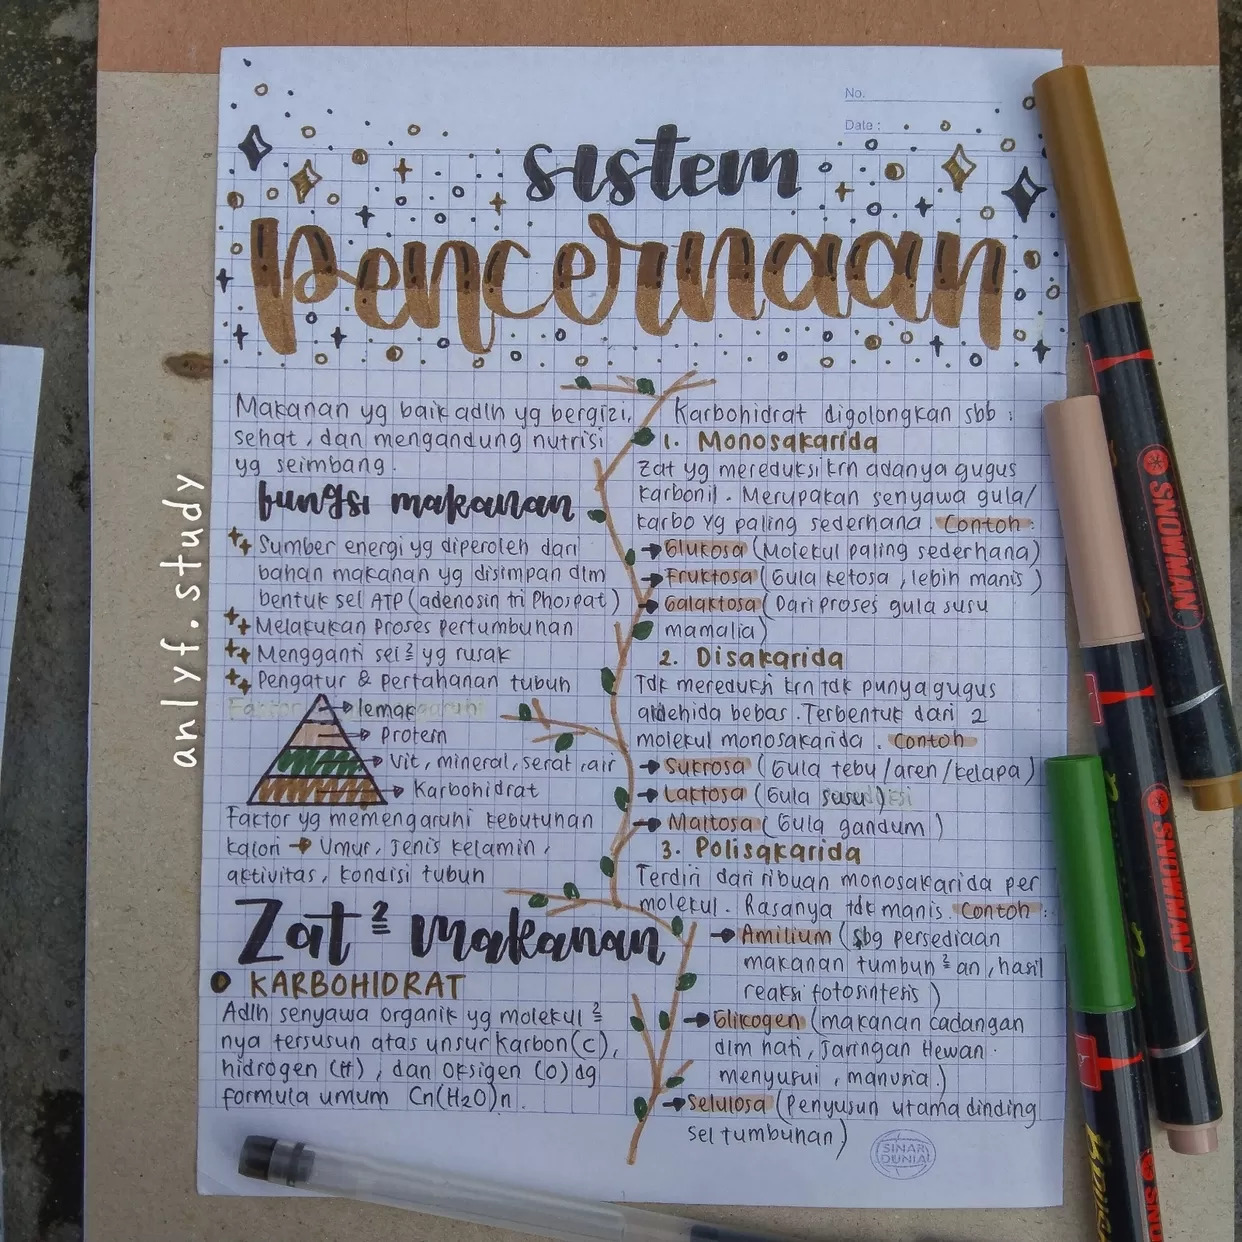 No.
Date :
sistem
Pencernaan
Makanan yg baik adlh yg bergizi,
sehat, dan mengandung nutrisi
yg seimbang.
fungsi makanan
Sumber energi yg diperoleh dari
bahan makanan yg disimpan dlm
bentuk sel ATP (adenosin tri Phospat)
Melakukan Proses pertumbuhan
Mengganti sel² yg rusak
Pengatur & pertahanan tubuh
→ lemak
→ Protein
→ Vit, mineral, serat, air
→ Karbohidrat
Faktor yg memengaruhi kebutuhan
kalori → Umur, Jenis kelamin,
aktivitas, kondisi tubuh
Zat² makanan
KARBOHIDRAT
Adlh senyawa organik yg molekul²
nya tersusun atas unsur karbon (C),
hidrogen (H), dan Oksigen (O) dg
formula umum Cn(H2O)n.
Karbohidrat digolongkan sbb :
1. Monosakarida
Zat yg mereduksi krn adanya gugus
karbonil. Merupakan senyawa gula/
karbo yg paling sederhana Contoh:
→ Glukosa (Molekul paling sederhana)
→ Fruktosa (Gula ketosa, lebih manis)
→ Galaktosa (Dari proses gula susu
mamalia)
2. Disakarida
Tdk mereduksi krn tdk punya gugus
aldehida bebas. Terbentuk dari 2
molekul monosakarida. Contoh
→ Sukrosa (Gula tebu/aren/kelapa)
→ Laktosa (Gula susu)
→ Maltosa (Gula gandum)
3. Polisakarida
Terdiri dari ribuan monosakarida per
molekul. Rasanya tdk manis. Contoh:
→ Amilium (sbg persediaan
makanan tumbuh²an, hasil
reaksi fotosintesis)
→ Glikogen (makanan cadangan
dlm hati, Jaringan Hewan
menyusui, manusia.)
→ Selulosa (Penyusun utama dinding
sel tumbuhan)
SINAR
DUNIA
anlyf.study
SNOWMAN
SNOWMAN